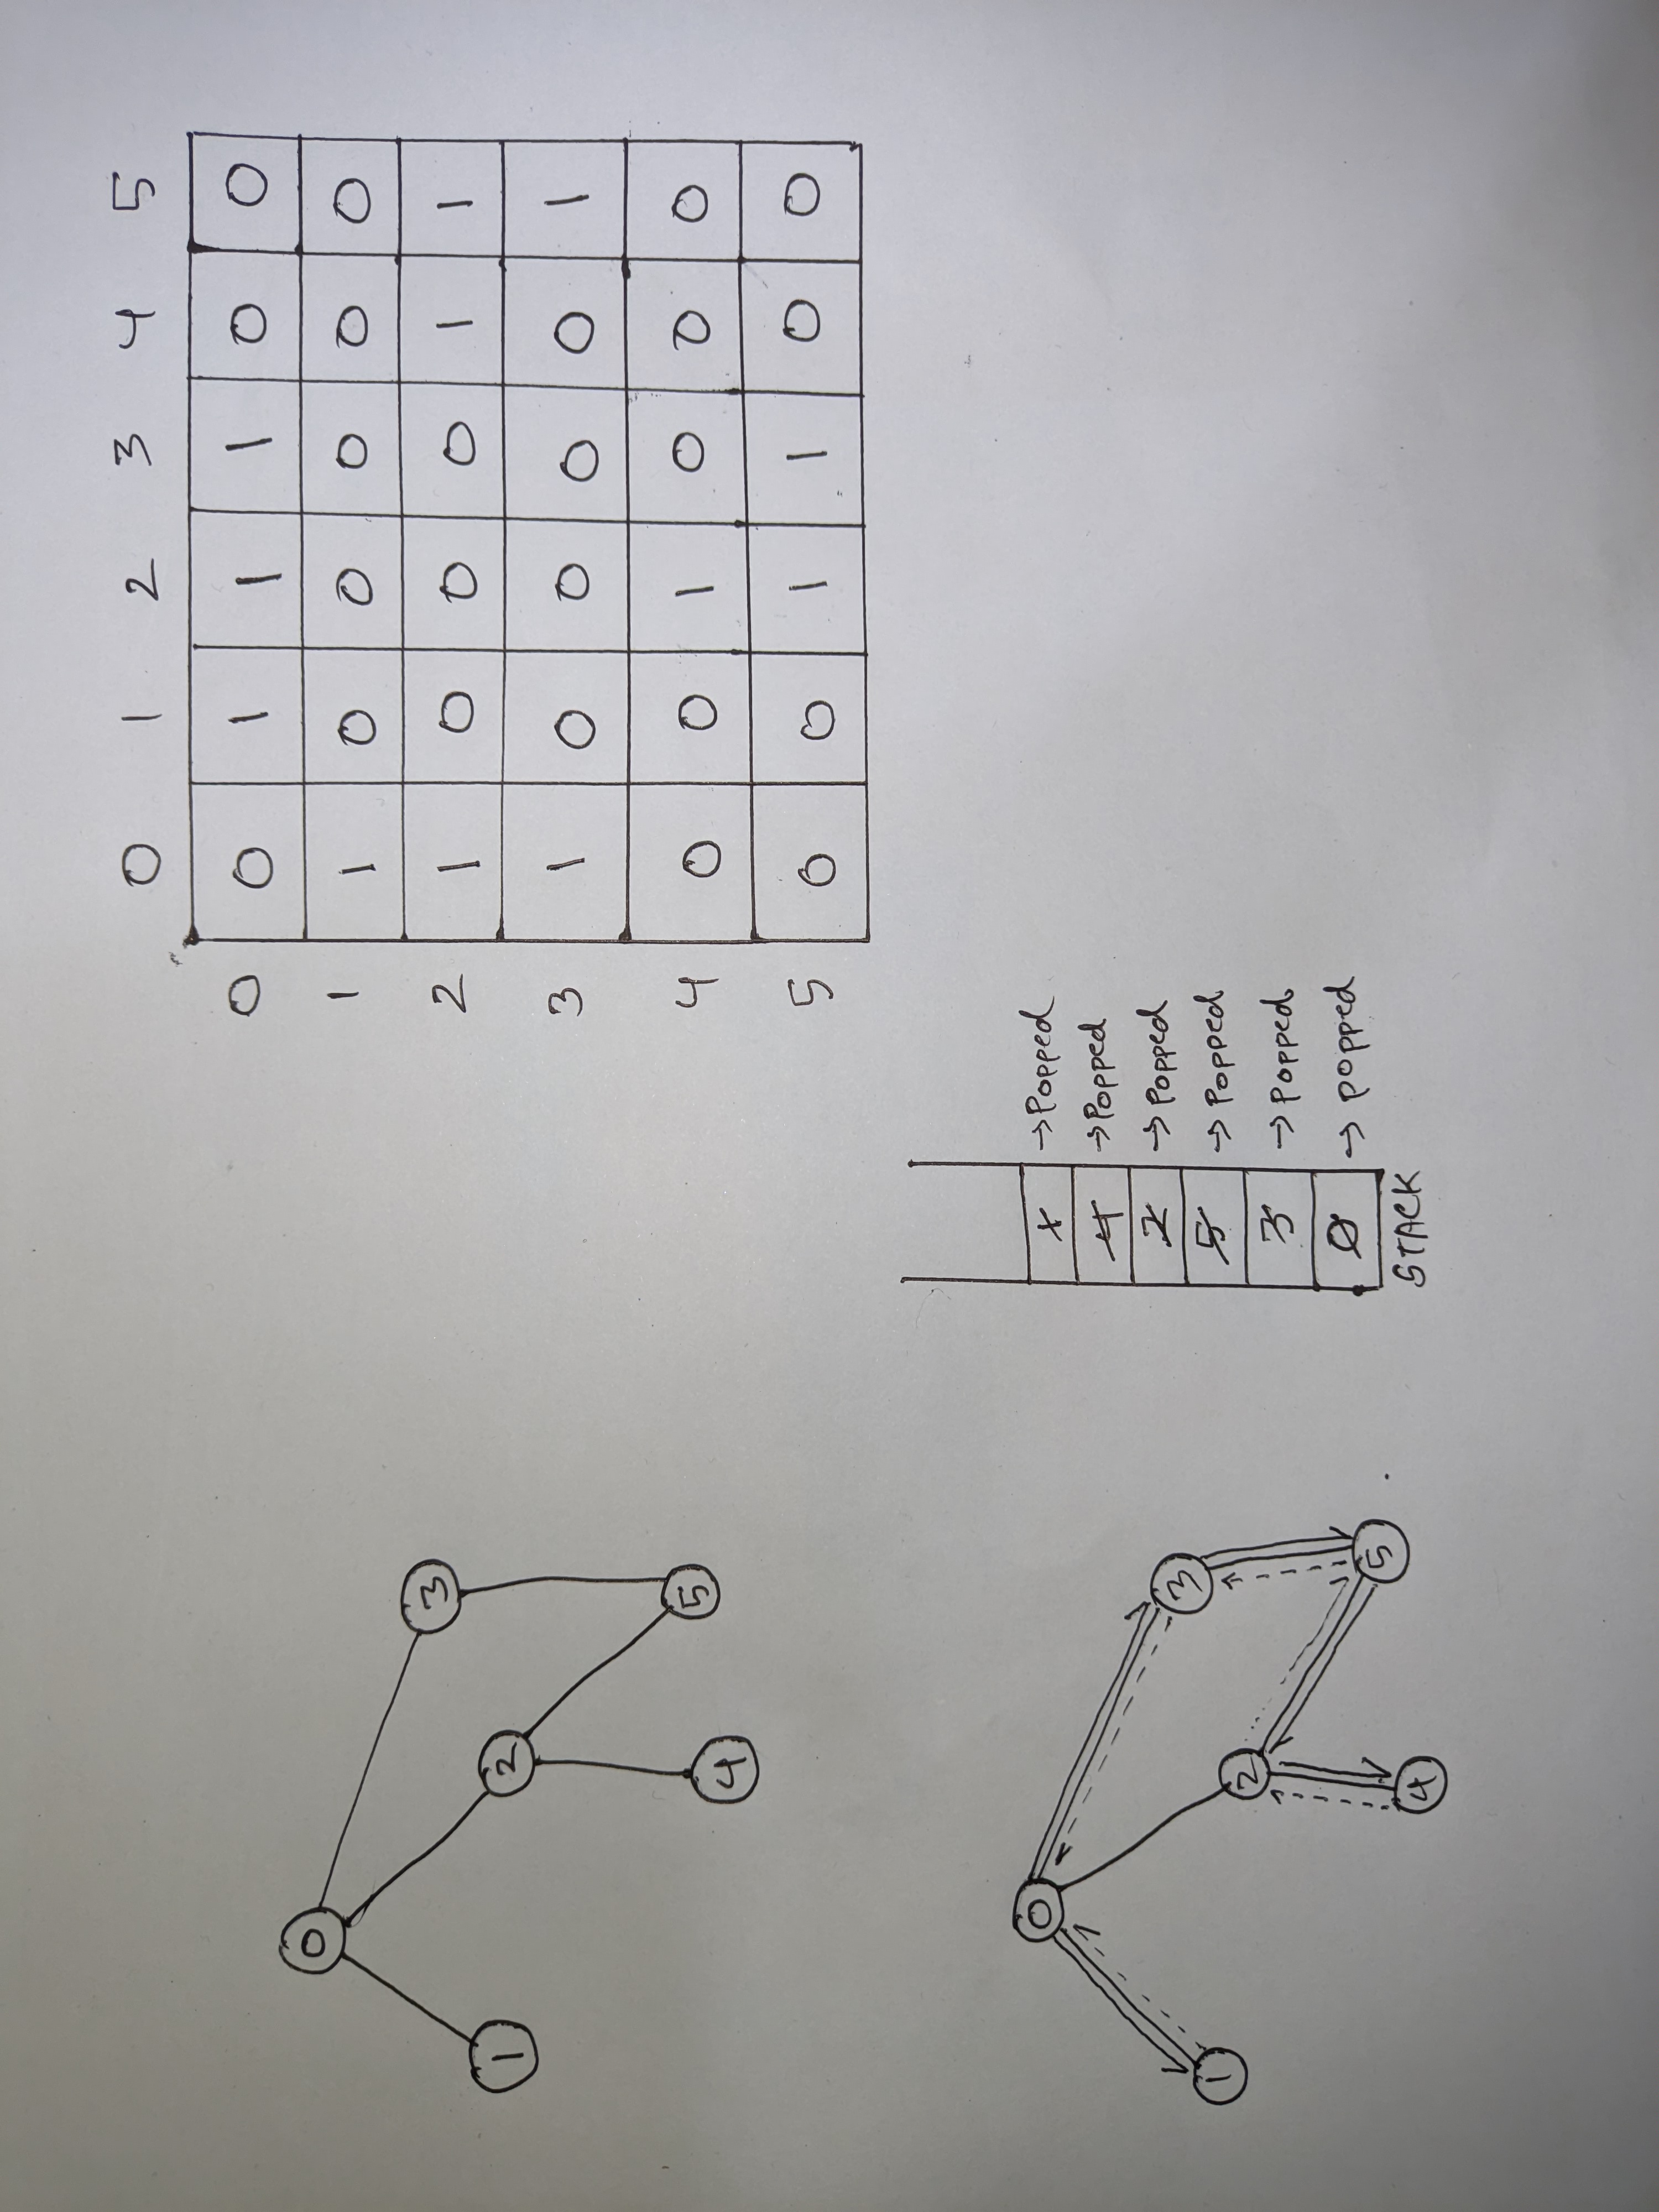 0
3
1
2
5
4
0 1 2 3 4 5
0 0 1 1 1 0 0
1 1 0 0 0 0 0
2 1 0 0 0 1 1
3 1 0 0 0 0 1
4 0 0 1 0 0 0
5 0 0 1 1 0 0
0
3
1
2
5
4
→Popped
4 →Popped
2 →Popped
5 →Popped
3 →Popped
0 →popped
STACK